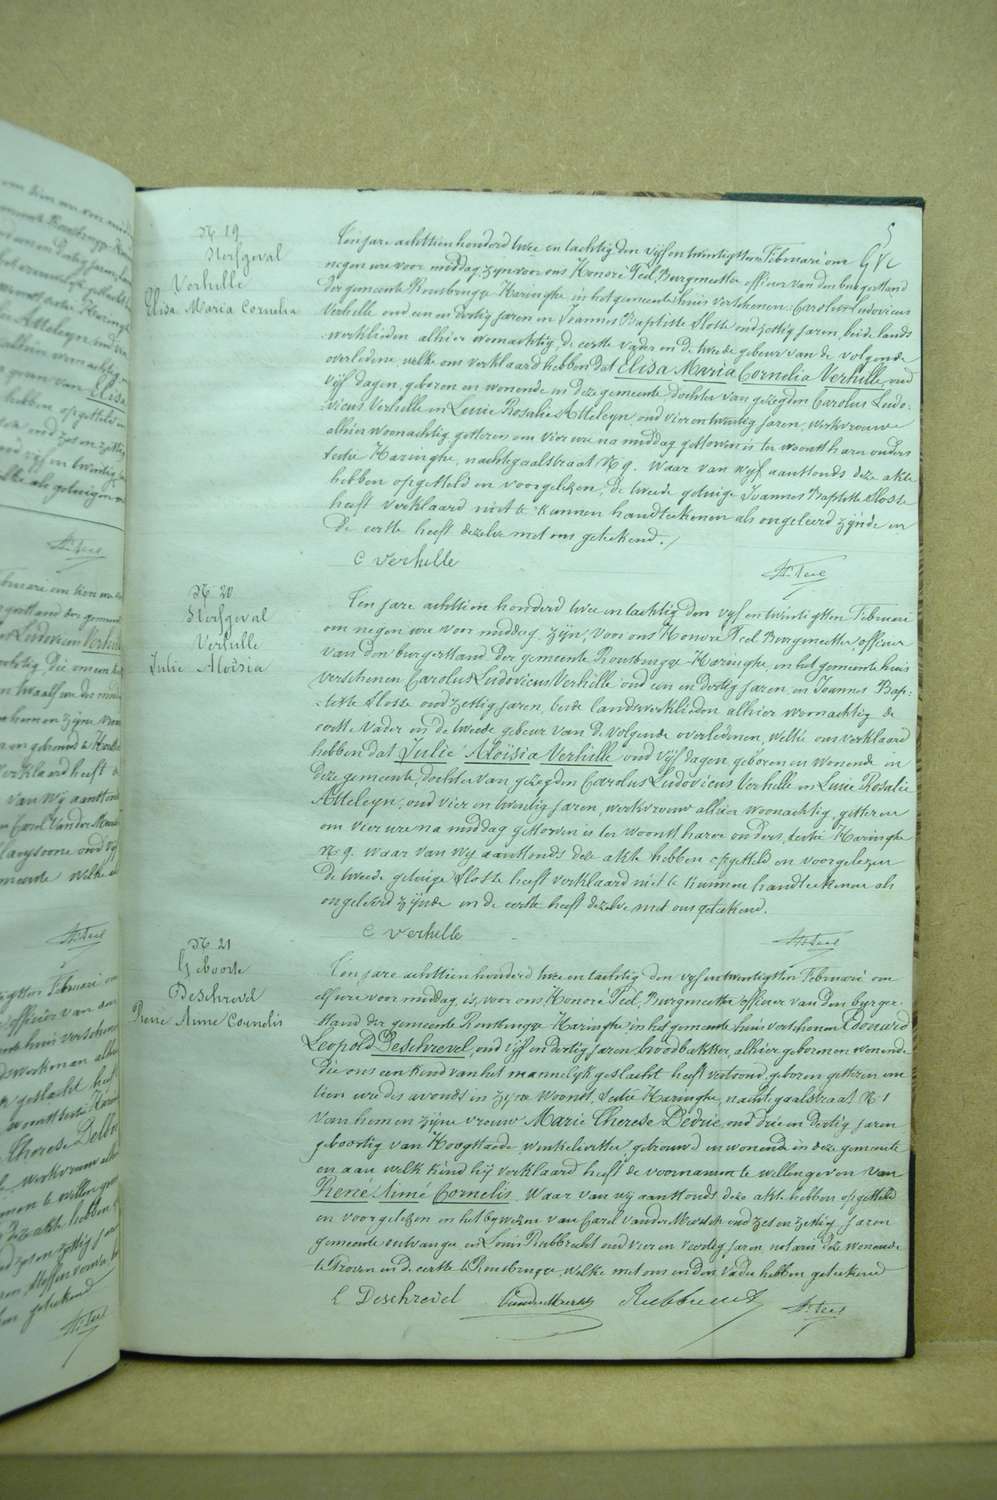 5
G V C
N 19
Sterfgeval
Verhille
Elisa Maria Cornelia
Ten jare achttien honderd twee en tachtig den vyf en twintigsten Februari om
negen ure voor middag zyn voor ons Honoré Teel, Burgmeester officier van den burgerstand
der gemeente Rousbrugge Haringhe, in het gemeente huis verschenen Carolus Ludovicus
Verhille oud een en dertig jaren en Joannes Baptiste Sloste oud zestig jaren, beide lands
werklieden alhier woonachtig, de eerste vader en de tweede gebuur van de volgende
overledene, welke ons verklaard hebben dat Elisa Maria Cornelia Verhille, oud
vyf dagen, geboren en wonende in deze gemeente dochter van gezegden Carolus Ludo-
vicus Verhille en Lucie Rosalie Atteleyn, oud vier en twintig jaren, werkvrouwe
alhier woonachtig gisteren om vier ure na middag gestorven is ter woonst haren ouders
sectie Haringhe, nachtegaalstraat N 9. Waar van wyf aanstonds deze akte
hebben opgesteld en voorgelezen, De tweede getuige Joannes Baptiste Sloste
heeft verklaard niet te kunnen handteekenen als ongeleerd zynde en
De eerste heeft dezelve met ons geteekend.
C Verhille H. Teel
N 20
Sterfgeval
Verhille
Julie Aloïsia
Ten jare achttien honderd twee en tachtig den vyf en twintigsten Februari
om negen ure voor middag, zyn, voor ons Honoré Teel Burgmeester officier
van den burgerstand der gemeente Rousbrugge Haringhe, in het gemeente huis
verschenen Carolus Ludovicus Verhille oud een en dertig jaren, en Joannes Bap-
tiste Sloste oud zestig jaren, beide landswerklieden alhier woonachtig de
eerste vader en de tweede gebuur van de volgende overledenen, welke ons verklaard
hebben dat Julie Aloïsia Verhille oud vyf dagen, geboren en wonende in
deze gemeente, dochter van gezegden Carolus Ludovicus Verhille en Lucie Rosalie
Atteleyn, oud vier en twintig jaren, werkvrouw alhier woonachtig, gisteren
om vier ure na middag gestorven is ter woonst harer ouders, sectie Haringhe
N 9. Waar van wy aanstonds deze akte hebben opgesteld en voorgelezen
De tweede getuige Sloste heeft verklaard niet te kunnen handteekenen als
ongeleerd zynde en de eerste heeft dezelve met ons geteekend.
C Verhille H. Teel
N 21
Geboorte
Deschrevel
René Aimé Cornelis
Ten jare achttien honderd twee en tachtig den vyf en twintigsten Februari om
elf ure voor middag, is, voor ons Honoré Teel, Burgmeester officier van den burger-
stand der gemeente Rousbrugge Haringhe in het gemeente huis verschenen Edouard
Leopold Deschrevel, oud vyf en dertig jaren, broodbakker, alhier geboren en wonende
Die ons een kind van het mannelyk geslacht heeft vertoond, geboren gisteren om
tien ure des avonds in zyne woonst, sectie Haringhe, nachtegaalstraat N 1
van hem en zyne vrouw Marie Therese Dedrie, oud drie en dertig jaren
geboortig van Hoogstaede, winkelierster, getrouwd en wonende in deze gemeente
en aan welk kind hij verklaard heeft de voornamen te willen geven van
René Aimé Cornelis. Waar van wy aanstonds deze akte hebben opgesteld
en voorgelezen in het bywezen van Carel vanderMeersch oud zes en zestig jaren
gemeente ontvanger en Louis Rubbrecht oud vier en veertig jaren, notaris de wonende
te Proven en de eerste te Rousbrugge, welke met ons en den vader hebben geteekend
E Deschrevel VanderMeersch Rubbrecht H. Teel